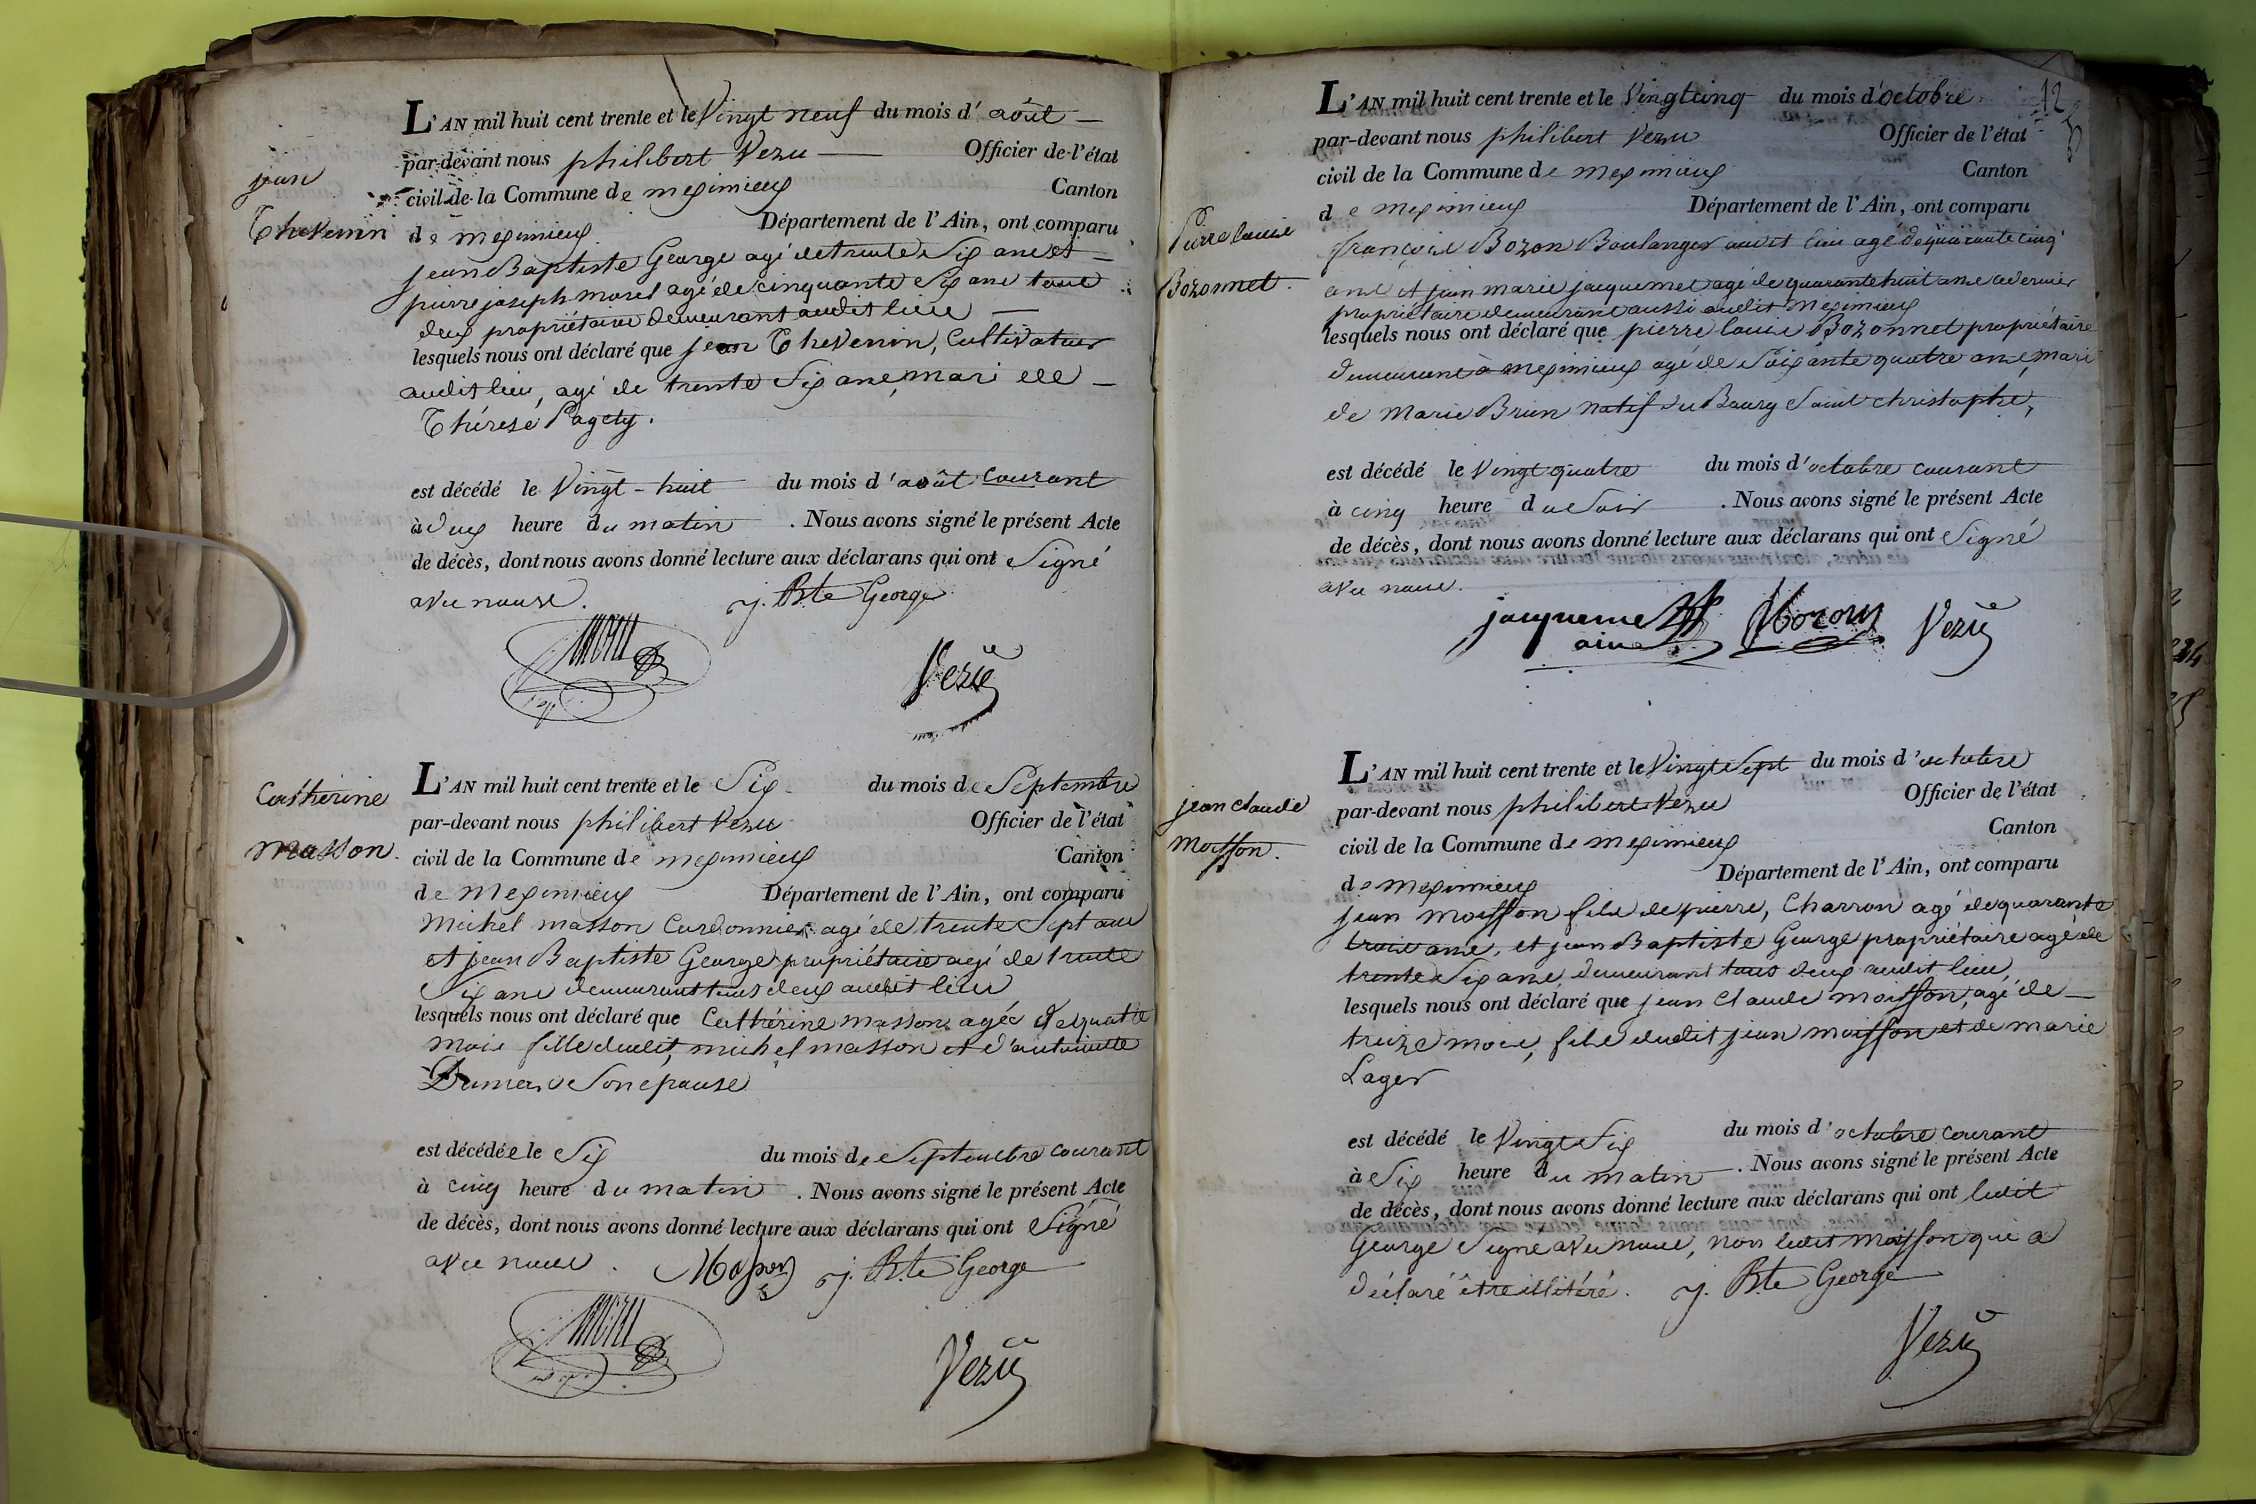 jean
Thevenin
L'AN mil huit cent trente et le Vingt neuf du mois d'août
par-devant nous philibert Vezu Officier de l'état
civil de la Commune de meximieux Canton
de meximieux Département de l'Ain, ont comparu
jean Baptiste George agé de trente Six ans et
pierre joseph morel agé de cinquante Six ans tous
deux propriétaires demeurant audit lieu
lesquels nous ont déclaré que jean Thevenin, Cultivateur
audit lieu, agé de trente Six ans, mari de
Thérese Pagety.
est décédé le Vingt-huit du mois d'août courant
à deux heure du matin . Nous avons signé le présent Acte
de décès, dont nous avons donné lecture aux déclarans qui ont Signé
avec nous. j. Bte George
Vezu
Catherine
masson.
L'AN mil huit cent trente et le Six du mois de Septembre
par-devant nous philibert Vezu Officier de l'état
civil de la Commune de meximieux Canton
de meximieux Département de l'Ain, ont comparu
Michel masson Cordonnier agé de trente Sept ans
et jean Baptiste George propriétaire agé de trente
Six ans demeurant tous deux audit lieu
lesquels nous ont déclaré que Cathérine masson agée de quatre
mois fille dudit michel masson et d'antoinette
son epouse
est décédée le Six du mois de Septembre courant
à cinq heure du matin . Nous avons signé le présent Acte
de décès, dont nous avons donné lecture aux déclarans qui ont Signé
avec nous . Masson j. Bte George
Vezu
12
Pierre louis
Bozonnet.
L'AN mil huit cent trente et le Vingtcinq du mois d'octobre
par-devant nous philibert Vezu Officier de l'état
civil de la Commune de meximieux Canton
de meximieux Département de l'Ain, ont comparu
françois Bozon Boulanger audit lieu agé de quarante cinq
ans et jean marie jacquemet agé de quarante huit ans ce dernier
propriétaire demeurant aussi audit Meximieux
lesquels nous ont déclaré que pierre louis Bozonnet propriétaire
demeurant à meximieux agé de Soixante quatre ans, mari
de Marie Brun natif du Bourg Saint christophe,
est décédé le Vingt quatre du mois d'octobre courant
à cinq heure du Soir . Nous avons signé le présent Acte
de décès, dont nous avons donné lecture aux déclarans qui ont Signé
avec nous.
jacquemet Bozon Vezu
ainé
jean claude
moisson.
L'AN mil huit cent trente et le Vingt Sept du mois d'octobre
par-devant nous philibert Vezu Officier de l'état
civil de la Commune de meximieux Canton
de meximieux Département de l'Ain, ont comparu
jean moisson fils de pierre, Charron agé de quarante
trois ans, et jean Baptiste George propriétaire agé de
trente Six ans, demeurant tous deux audit lieu,
lesquels nous ont déclaré que jean Claude moisson, agé de
treize mois, fils dudit jean moisson et de marie
Lager
est décédé le Vingt Six du mois d'octobre courant
à Six heure du matin . Nous avons signé le présent Acte
de décès, dont nous avons donné lecture aux déclarans qui ont ledit
George Signé avec nous, non ledit moisson qui a
déclaré être illitéré. j. Bte George
Vezu